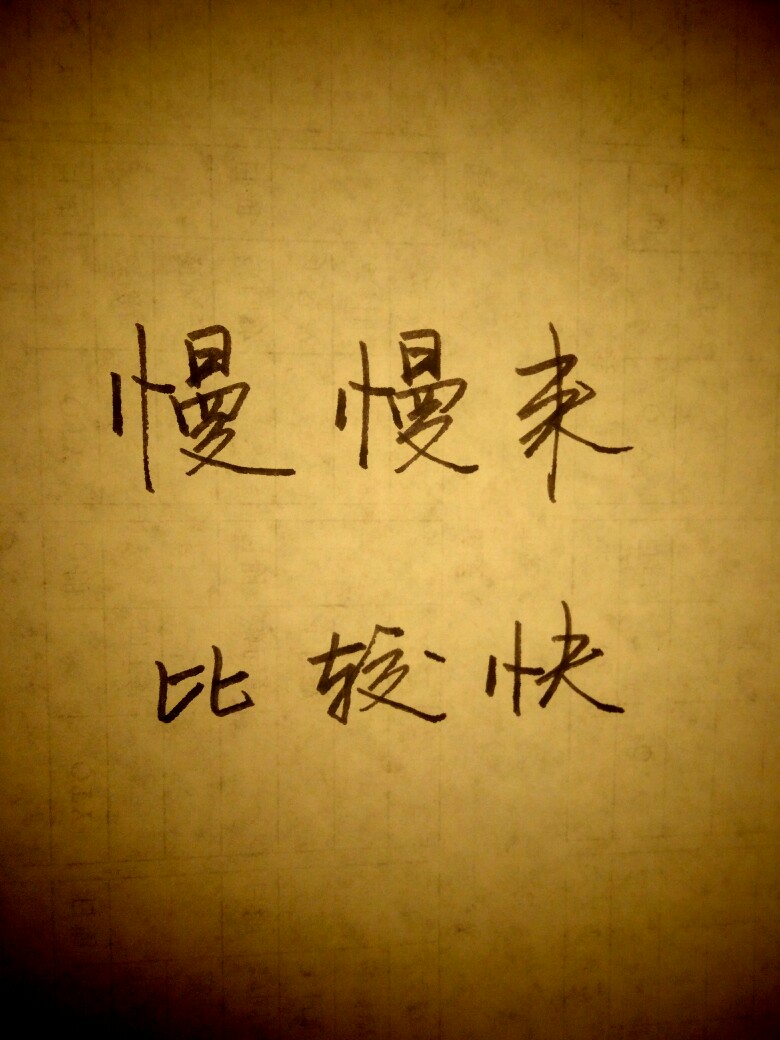 慢慢来
比较快